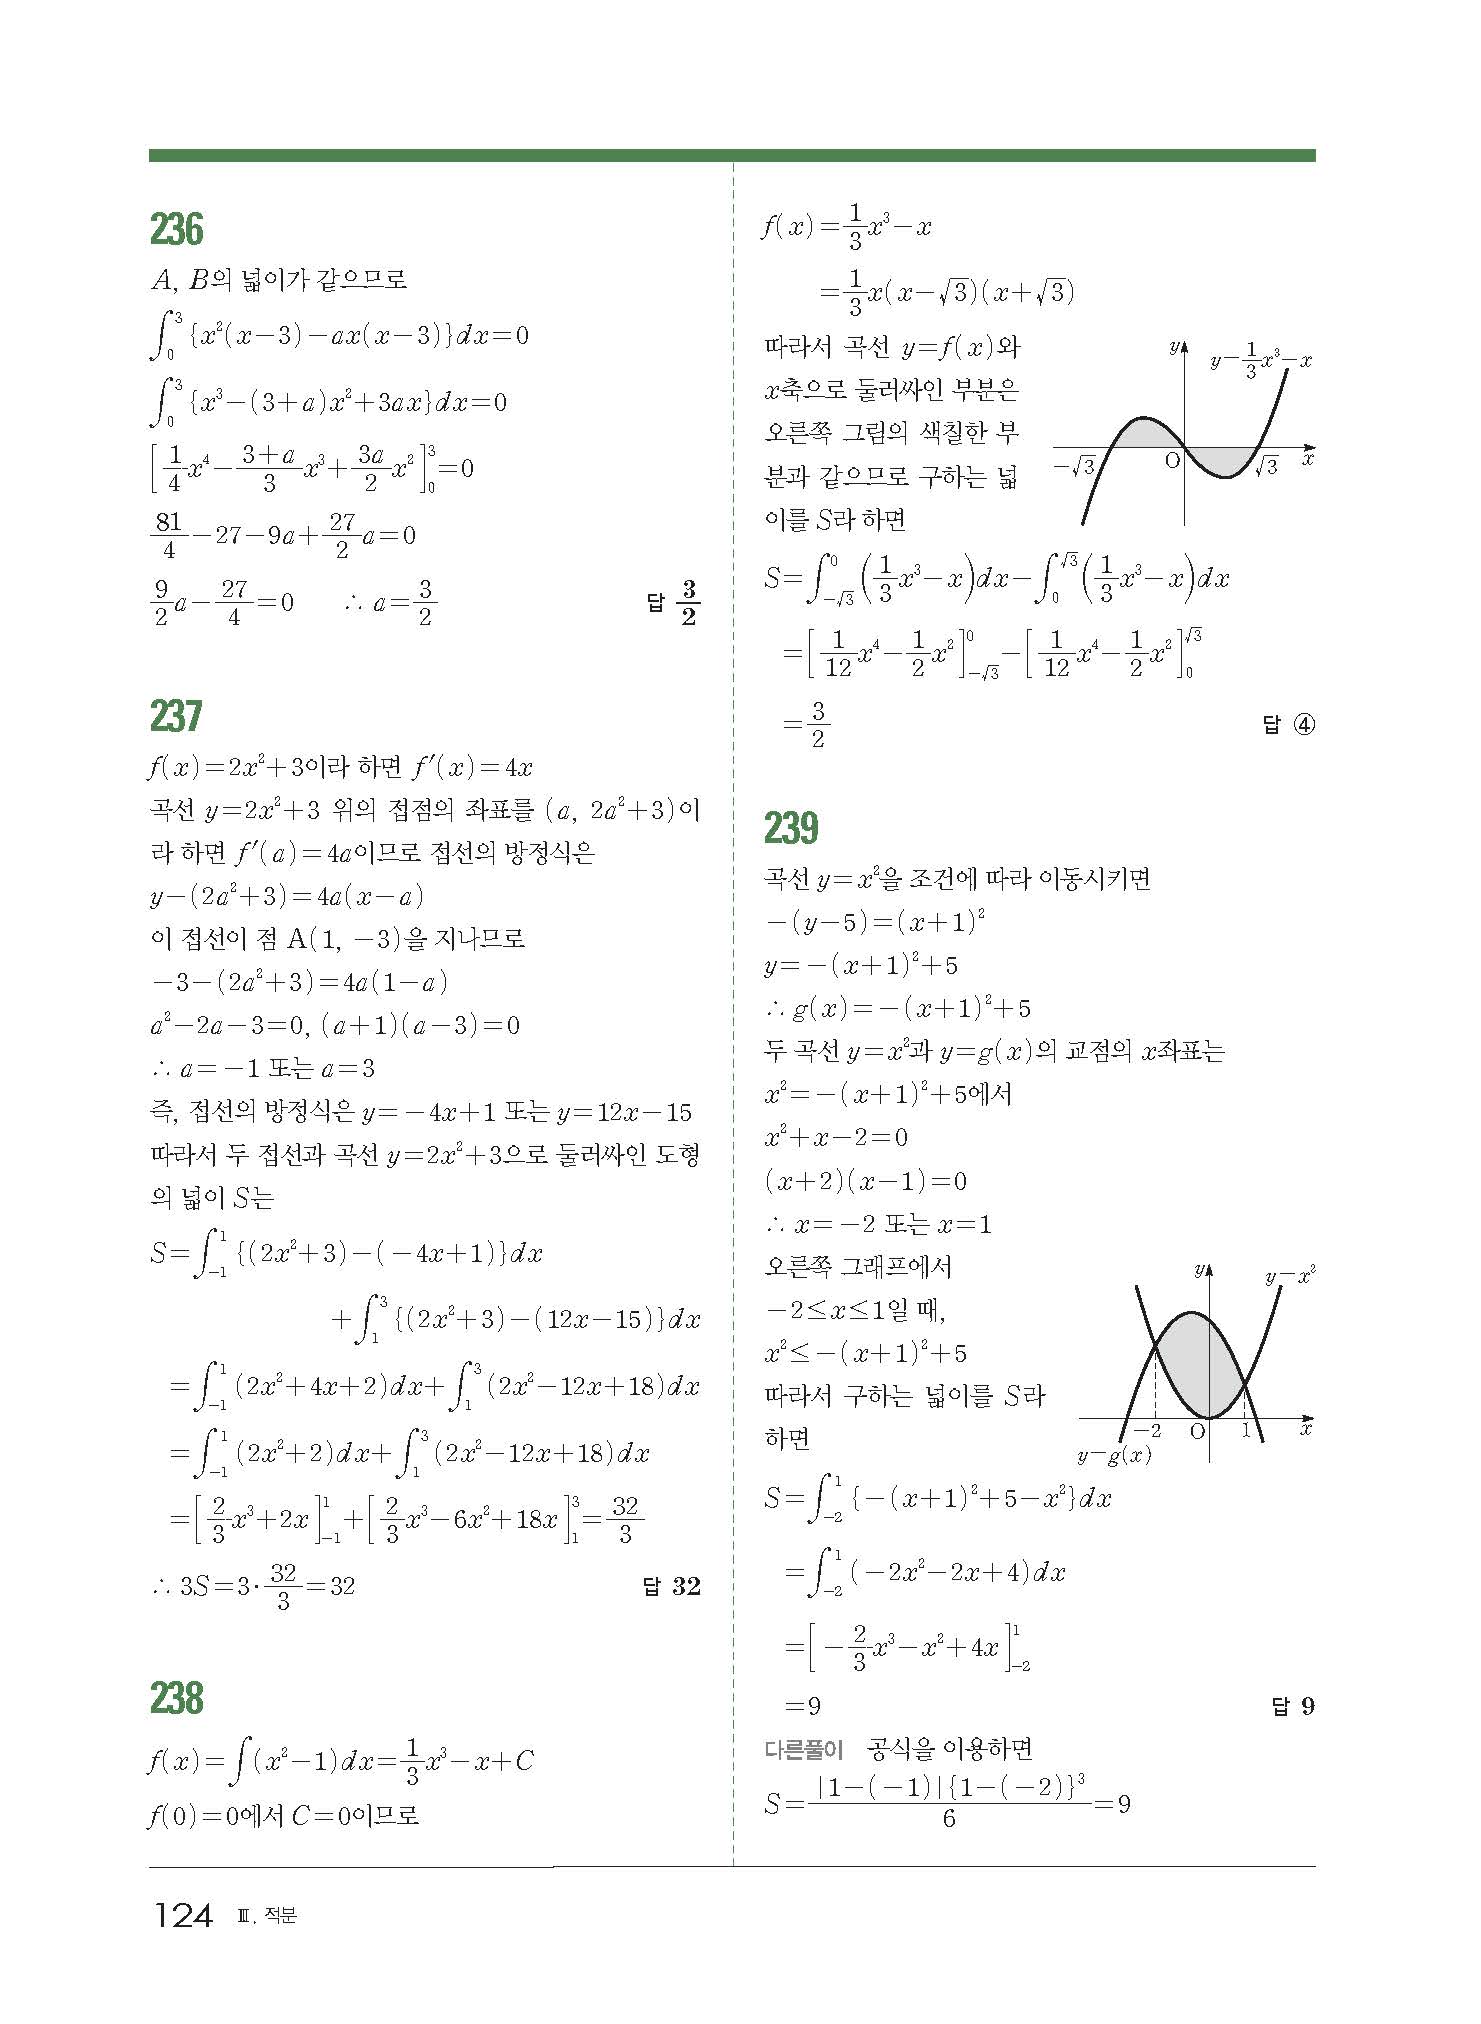 236
A, B의 넓이가 같으므로
∫₀³ {x²(x−3)−ax(x−3)}dx=0
∫₀³ {x³−(3+a)x²+3ax}dx=0
[1/4 x⁴−(3+a)/3 x³+3a/2 x²]₀³=0
81/4−27−9a+27/2 a=0
9/2 a−27/4=0 ∴ a=3/2 답 3/2
237
f(x)=2x²+3이라 하면 f′(x)=4x
곡선 y=2x²+3 위의 접점의 좌표를 (a, 2a²+3)이
라 하면 f′(a)=4a이므로 접선의 방정식은
y−(2a²+3)=4a(x−a)
이 접선이 점 A(1, −3)을 지나므로
−3−(2a²+3)=4a(1−a)
a²−2a−3=0, (a+1)(a−3)=0
∴ a=−1 또는 a=3
즉, 접선의 방정식은 y=−4x+1 또는 y=12x−15
따라서 두 접선과 곡선 y=2x²+3으로 둘러싸인 도형
의 넓이 S는
S=∫₋₁¹ {(2x²+3)−(−4x+1)}dx
+∫₁³ {(2x²+3)−(12x−15)}dx
=∫₋₁¹ (2x²+4x+2)dx+∫₁³ (2x²−12x+18)dx
=∫₋₁¹ (2x²+2)dx+∫₁³ (2x²−12x+18)dx
=[2/3 x³+2x]₋₁¹+[2/3 x³−6x²+18x]₁³=32/3
∴ 3S=3·32/3=32 답 32
238
f(x)=∫(x²−1)dx=1/3 x³−x+C
f(0)=0에서 C=0이므로
f(x)=1/3 x³−x
=1/3 x(x−√3)(x+√3)
따라서 곡선 y=f(x)와
x축으로 둘러싸인 부분은
오른쪽 그림의 색칠한 부
분과 같으므로 구하는 넓
이를 S라 하면
y
y=1/3 x³−x
−√3 O √3 x
S=∫_{−√3}^{0} (1/3 x³−x)dx−∫_{0}^{√3} (1/3 x³−x)dx
=[1/12 x⁴−1/2 x²]_{−√3}^{0}−[1/12 x⁴−1/2 x²]_{0}^{√3}
=3/2 답 ④
239
곡선 y=x²을 조건에 따라 이동시키면
−(y−5)=(x+1)²
y=−(x+1)²+5
∴ g(x)=−(x+1)²+5
두 곡선 y=x²과 y=g(x)의 교점의 x좌표는
x²=−(x+1)²+5에서
x²+x−2=0
(x+2)(x−1)=0
∴ x=−2 또는 x=1
오른쪽 그래프에서
−2≤x≤1일 때,
x²≤−(x+1)²+5
따라서 구하는 넓이를 S라
하면
y y=x²
−2 O 1 x
y=g(x)
S=∫₋₂¹ {−(x+1)²+5−x²}dx
=∫₋₂¹ (−2x²−2x+4)dx
=[−2/3 x³−x²+4x]₋₂¹
=9 답 9
다른풀이 공식을 이용하면
S=|1−(−1)|{1−(−2)}³/6=9
124 Ⅲ. 적분